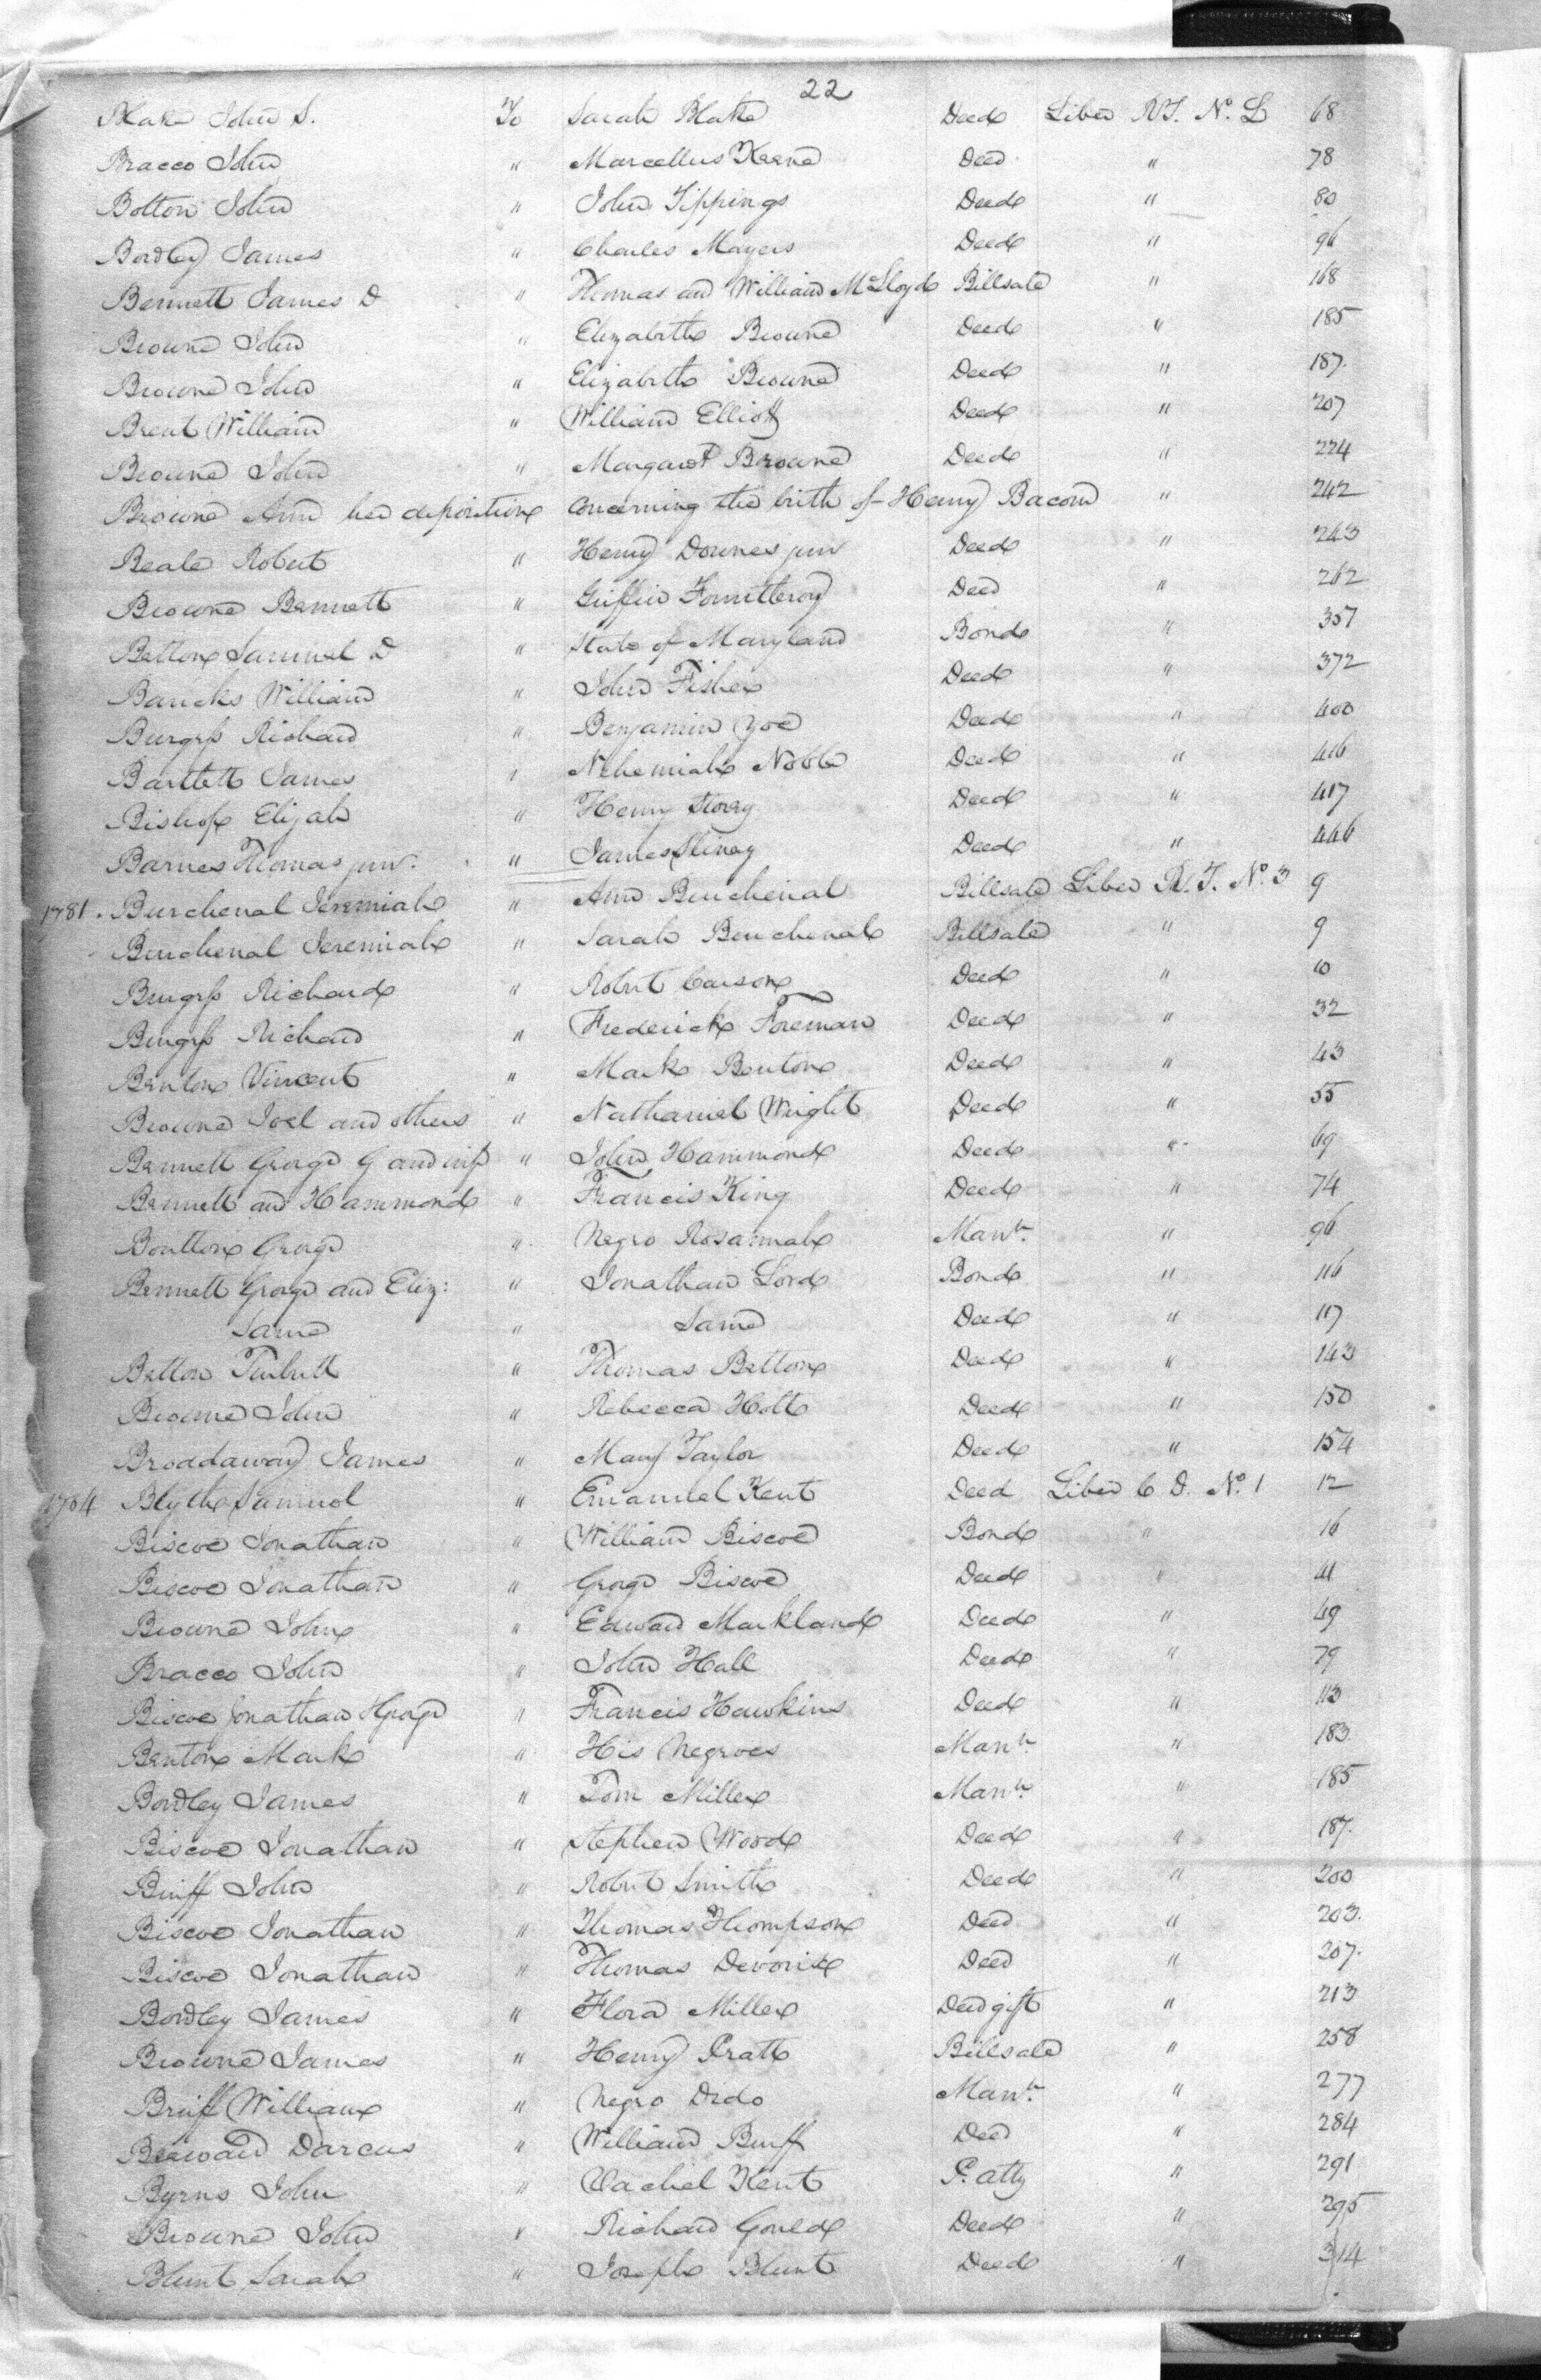 22
Blake John S. To Sarah Blake Deed Liber RT. No. L 68
Bracco John " Marcellus Keene Deed " 78
Bolton John " John Tippings Deed " 80
Bordley James " Charles Mayers Deed " 96
Bennett James D " Thomas and William McLloyd Billsale " 168
Browne John " Elizabeth Browne Deed " 185
Browne John " Elizabeth Browne Deed " 187.
Brent William " William Elliott Deed " 207
Browne John " Margaret Browne Deed " 224
Browne Ann her deposition concerning the birth of Henry Bacom " 242
Beale Robert " Henry Downes junr Deed " 243
Browne Bennett " Griffin Fountleroy Deed " 262
Betton Samuel D " State of Maryland Bond " 357
Bancks William " John Fisher Deed " 372
Burgess Richard " Benjamin Yoe Deed " 400
Bartlett James " Nehemiah Noble Deed " 416
Bishop Elijah " Henry Story Deed " 417
Barnes Thomas junr. " James Deed " 446
1781. Burchenal Jeremiah " Ann Burchenal Billsale Liber R.T. No. 3 9
Burchenal Jeremiah " Sarah Burchenal Billsale " 9
Burgess Richard " Robert Carson Deed " 10
Burgess Richard " Frederick Foreman Deed " 32
Benton Vincent " Mark Benton Deed " 43
Browne Joel and others " Nathaniel Wright Deed " 55
Bennett George G and wife " John Hammond Deed " 69
Bennett and Hammond " Francis King Deed " 74
Boulton George " Negro Rosannah Mann. " 96
Bennett George and Eliz: " Jonathan Lord Bond " 116
Same " Same Deed " 117
Betton Turbutt " Thomas Betton Deed " 143
Browne John " Rebecca Holt Deed " 150
Broadaway James " Mary Taylor Deed " 154
1784 Blyth Samuel " Emanuel Kent Deed Liber C D. No. 1 12
Biscoe Jonathan " William Biscoe Bond " 16
Biscoe Jonathan " George Biscoe Deed " 41
Browne John " Edward Markland Deed " 49
Bracco John " John Hall Deed " 79
Biscoe Jonathan & George " Francis Hawkins Deed " 113
Benton Mark " His Negroes Mann. " 183.
Bordley James " Tom Miller Mann. " 185
Biscoe Jonathan " Stephen Wood Deed " 187.
Bruff John " Robert Smith Deed " 200
Biscoe Jonathan " Thomas Thompson Deed " 203.
Biscoe Jonathan " Thomas Deed " 207.
Bordley James " Flora Miller Deed gift " 213
Browne James " Henry Pratt Billsale " 258
Bruff William " Negro Dido Mann. " 277
Darcus " William Bruff Deed " 284
Byrns John " Vachel Kent P. atty " 291
Browne John " Richard Gould Deed " 295
Blunt Sarah " Joseph Blunt Deed " 314